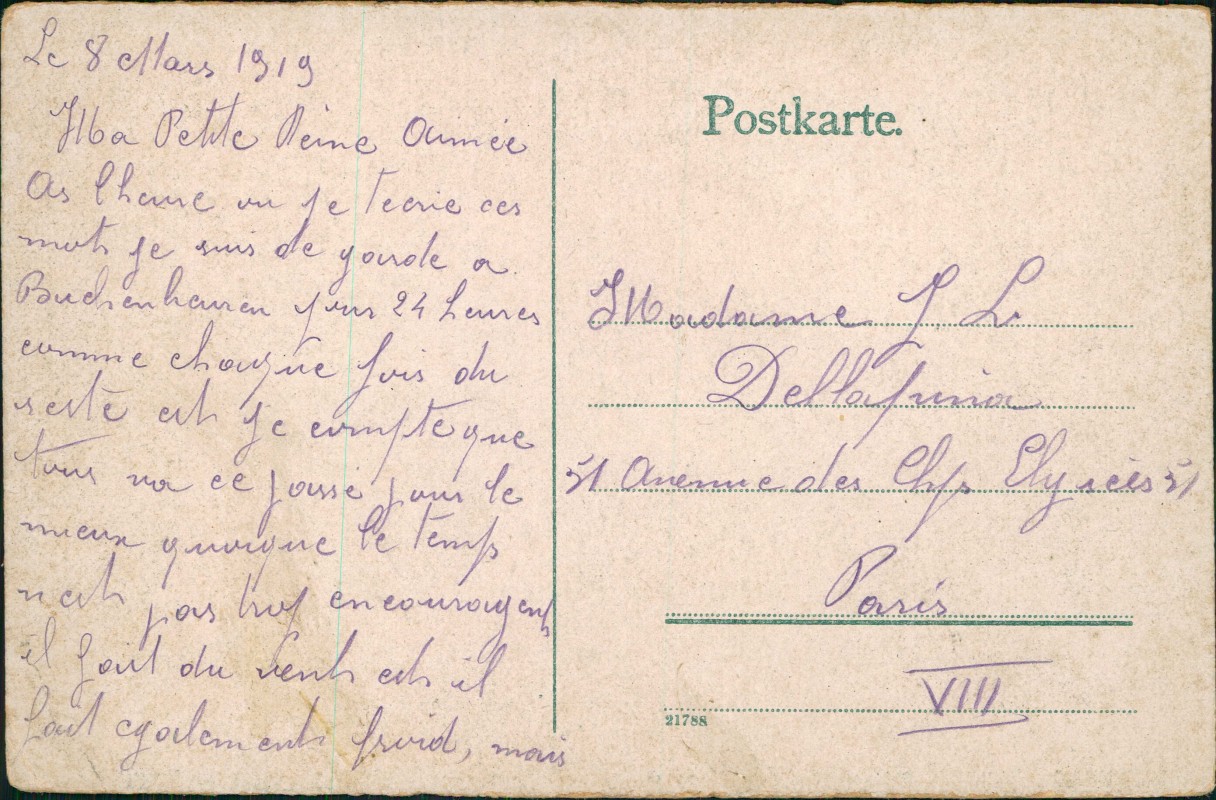 Le 8 Mars 1919
Ma Petite Reine Aimée
As lheure ou je tecrie ces
mots je suis de garde a
Buchenhausen pour 24 heures
comme chaque fois du
reste est je compte que
tous va ce passé pour le
mieux quoique le temps
nest pas trop encouragent
il fait du vent est il
fait egalement froid, mais
Postkarte.
Madame J L
Dellapina
51 Avenue des Chps Elysées 51
Paris
VIII
21788